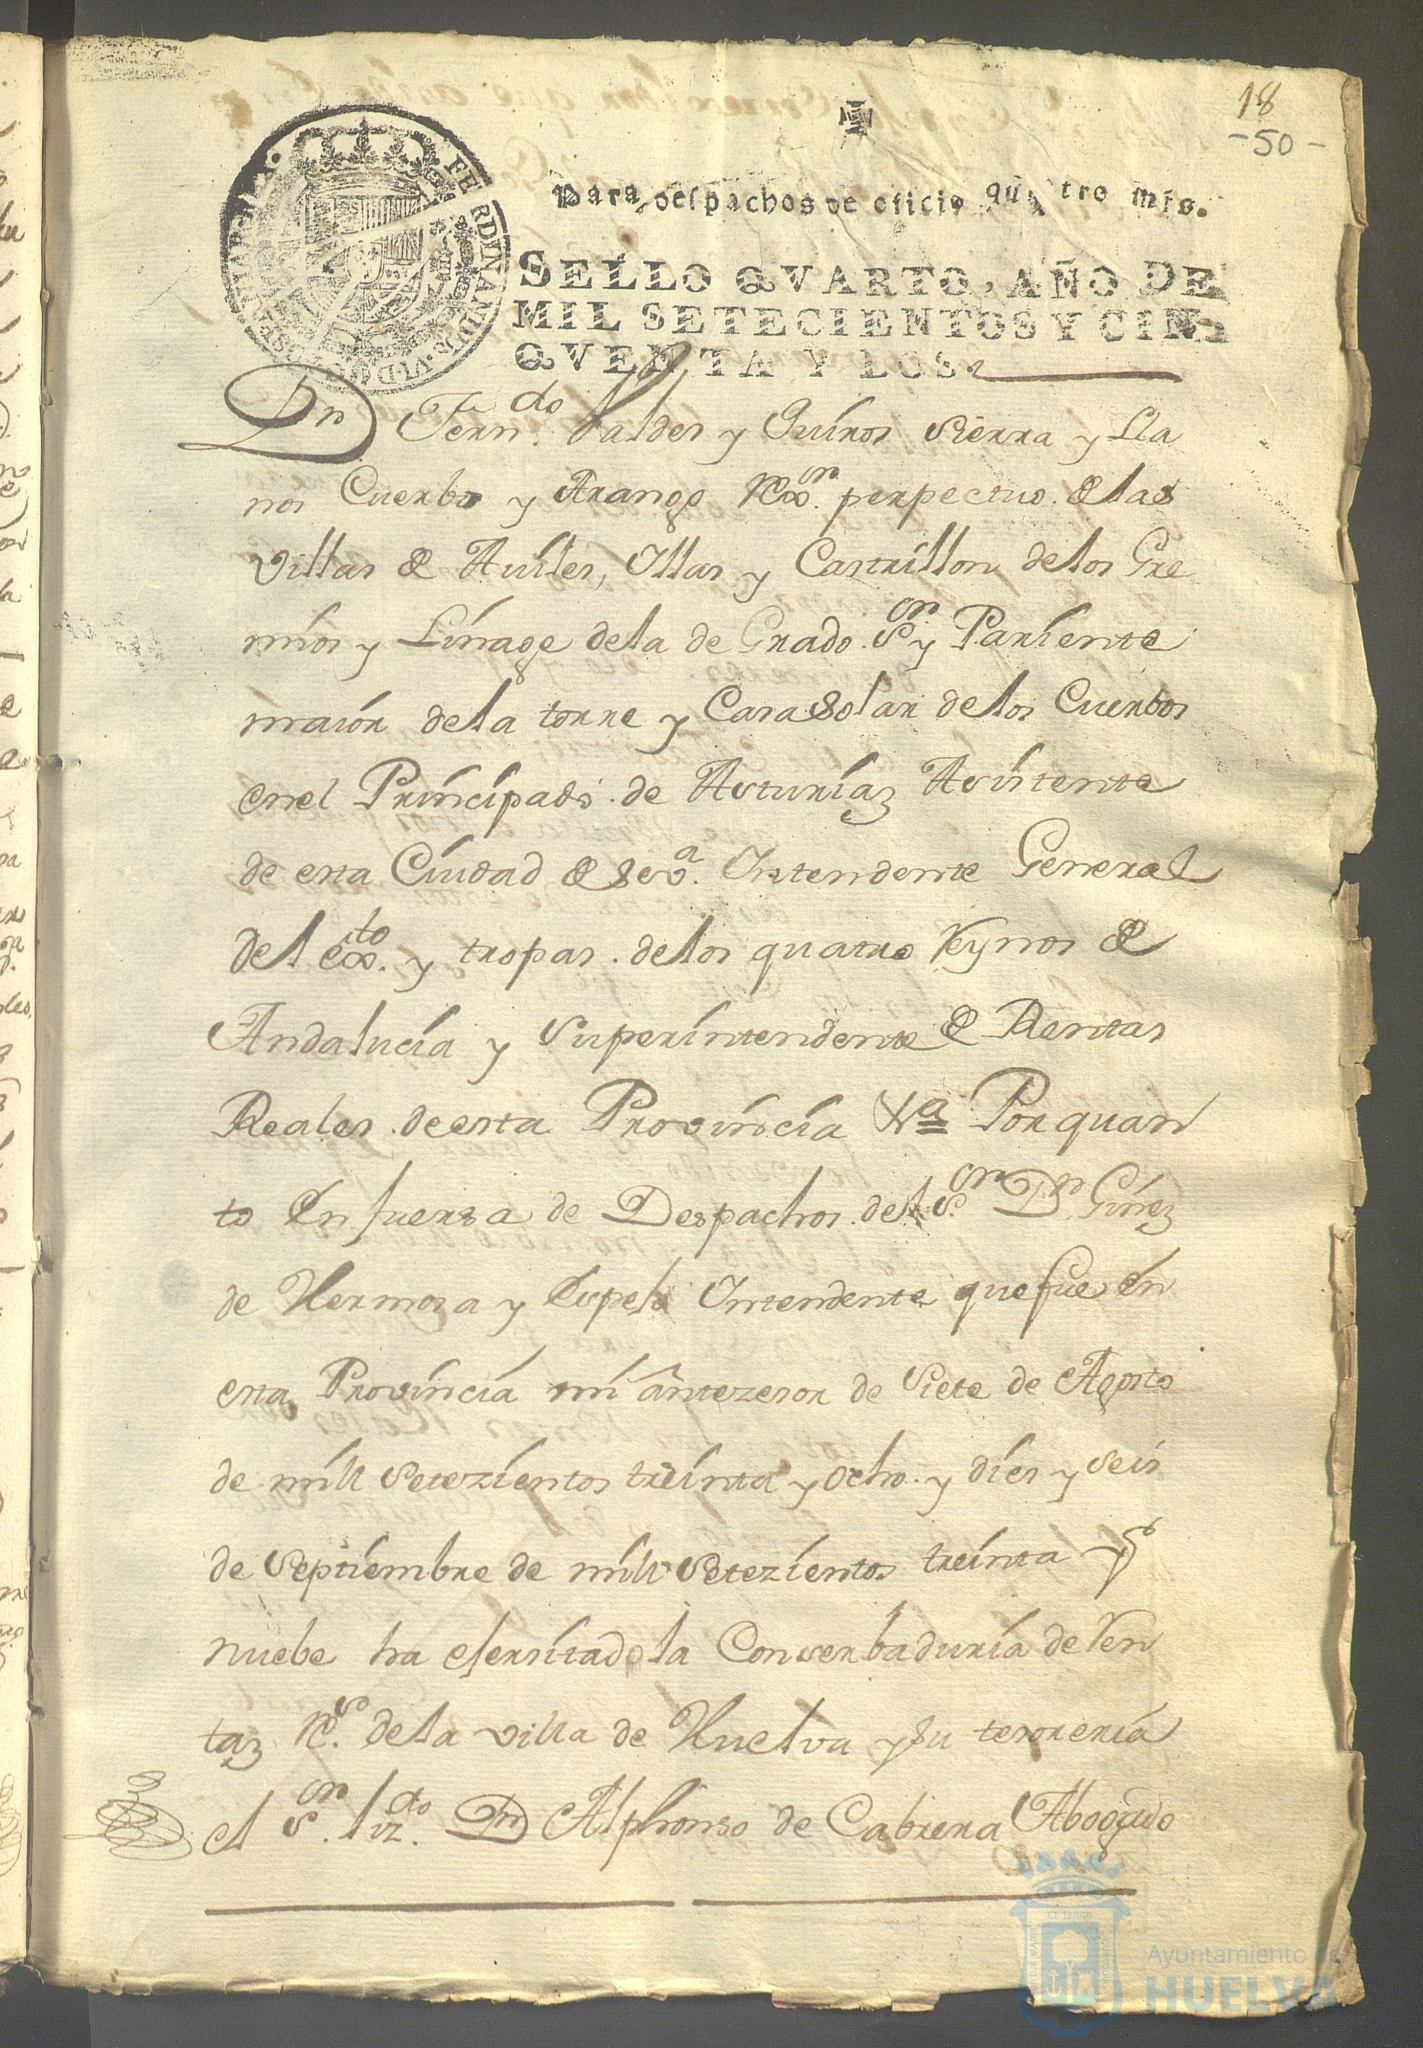 18
-50-
Para despachos de oficio quatro mrs.
SELLO QVARTO, AÑO DE
MIL SETECIENTOS Y CIN
QVENTA Y DOS.
Dn Ferndo. Valdes y Quiros Sierra y Lla
nos Cuerbo y Arango Rexor. perpectuo de las
villas de Auiles, Yllas y Castrillon de los Gre
mios y Linage de la de Grado. Sor. y Pariente
maior de la torre y Casa Solar de los Cuerbos
en el Principado. de Asturiaz Asistente
de esta Ciudad de Seva. Intendente General
del exto. y tropas. de los quatro Reynos de
Andalucia y Superintendente de Rentas
Reales. de esta Provincia Va Por quan
to En fuersa de Despachos. del Sor. Dn Ginez
de Hermosa y Espejo Intendente que fue en
esta Provincia mi antezesor de Siete de Agosto
de mill Setezientos treinta y ocho. y dies y seis
de Septiembre de mill Setezientos treinta y
nuebe ha ejersitado la Conserbaduria de Ren
taz Rs. de la villa de Huelva y su tesoreria
el Sor. Lizdo. Dn Alphonso de Cabrera Abogado
Ayuntamiento de
HUELVA